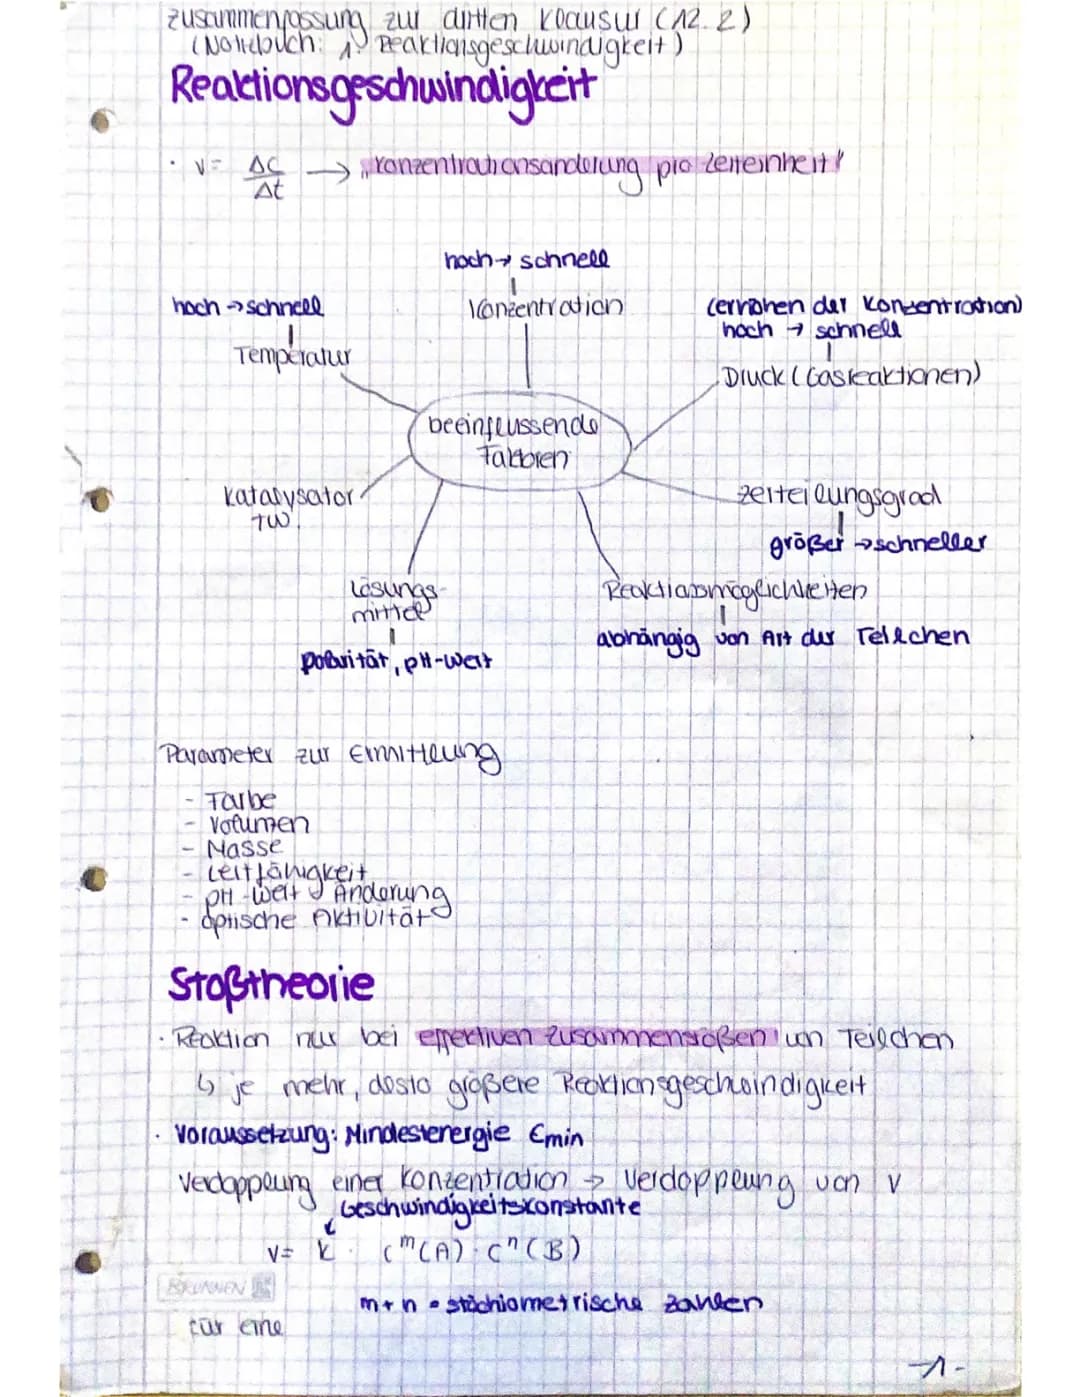 Zusammenfassung zur dritten Klausur (12.2)
(Notebuch: Reaktionsgeschwindigkeit)
Reaktionsgeschwindigkeit
· v= Δc/Δt → "Konzentrationsänderung pro Zeiteinheit"
hoch → schnell
Konzentration
hoch → schnell
Temperatur
(erhöhen der Konzentration)
hoch → schnell
Druck (Gasreaktionen)
beeinflussende
Faktoren
Katalysator
TW.
Zerteilungsgrad
größer → schneller
Lösungs-
mittel
Polarität, pH-Wert
Reaktionsmöglichkeiten
abhängig von Art der Teilchen
Parameter zur Ermittlung
- Farbe
- Volumen
- Masse
- Leitfähigkeit
- pH-Wert Änderung
- optische Aktivität
Stoßtheorie
· Reaktion nur bei effektiven Zusammenstößen von Teilchen
↳ je mehr, desto größere Reaktionsgeschwindigkeit
· Voraussetzung: Mindestenergie Emin
Verdopplung einer Konzentration → Verdopplung von v
Geschwindigkeitskonstante
v= k · c^m(A) · c^n(B)
BRUNNEN
m+n = stöchiometrische Zahlen
für eine
-1-